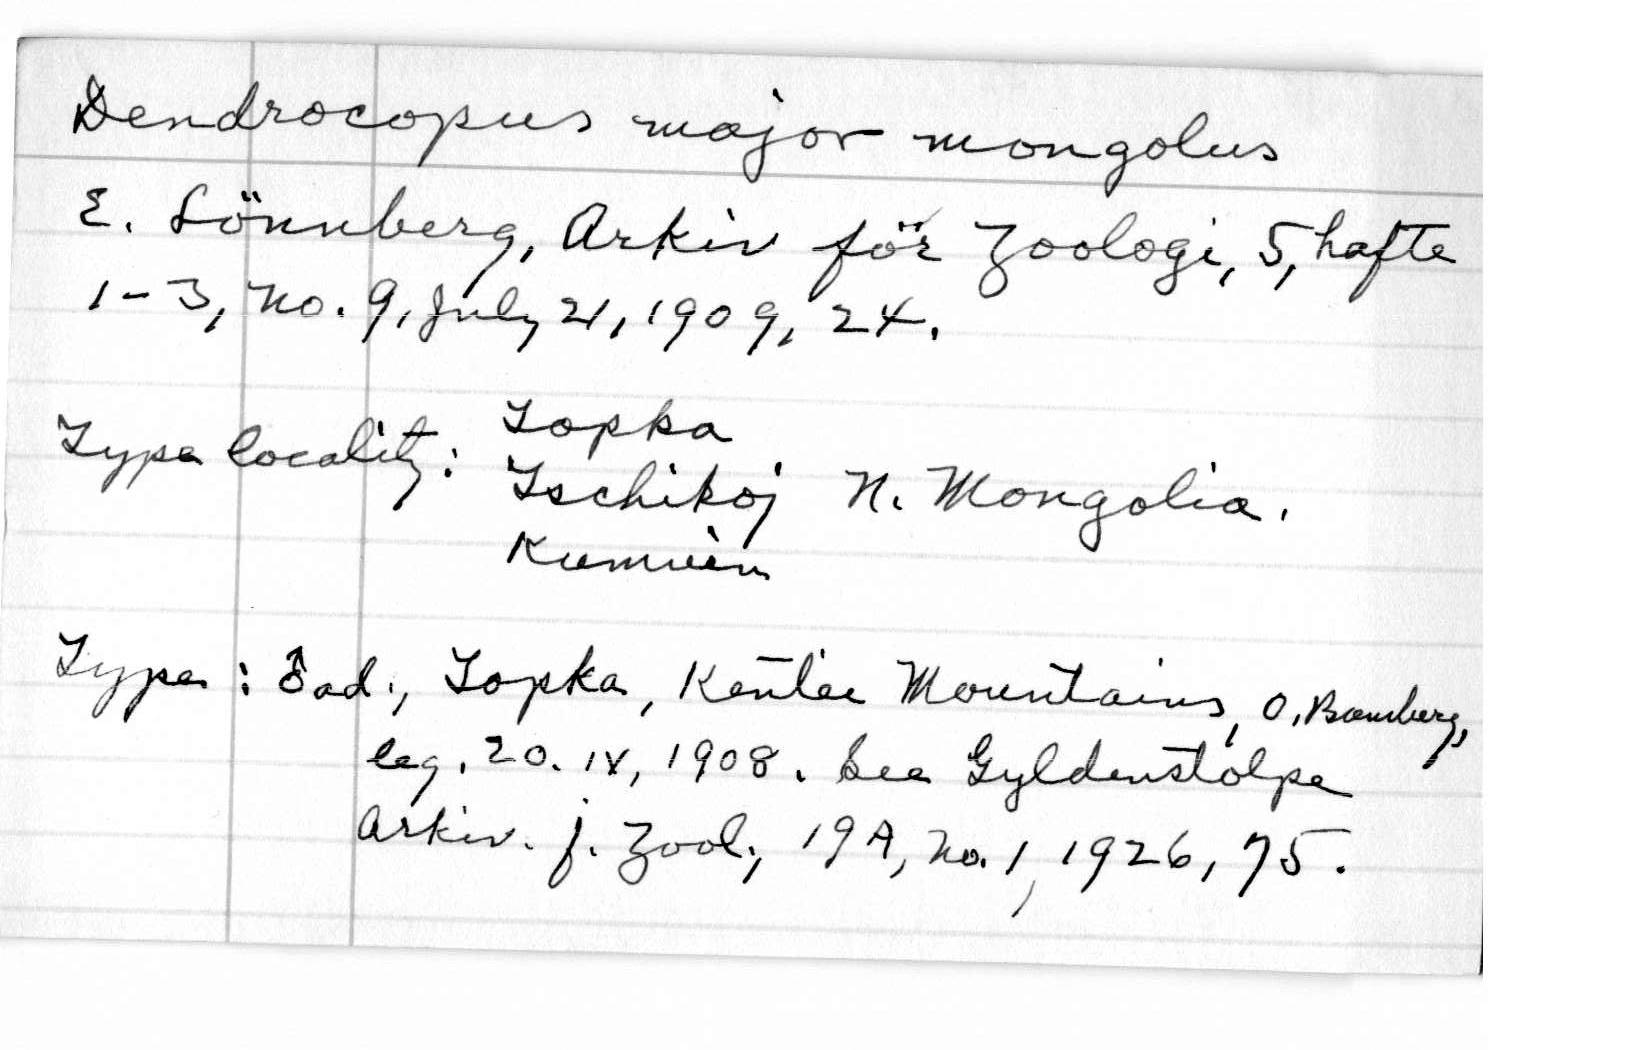 Dendrocopus major mongolus
E. Lönnberg, Arkiv för Zoologi, 5, hafte
1-3, no. 9, July 21, 1909, 24.
Type locality: Topka
Tschikoj N. Mongolia.
Type: ♂ ad., Topka, Kentei Mountains, O. Bamberg,
leg. 20. IX, 1908. See Gyldenstolpe
Arkiv. f. Zool., 19A, no. 1, 1926, 75.